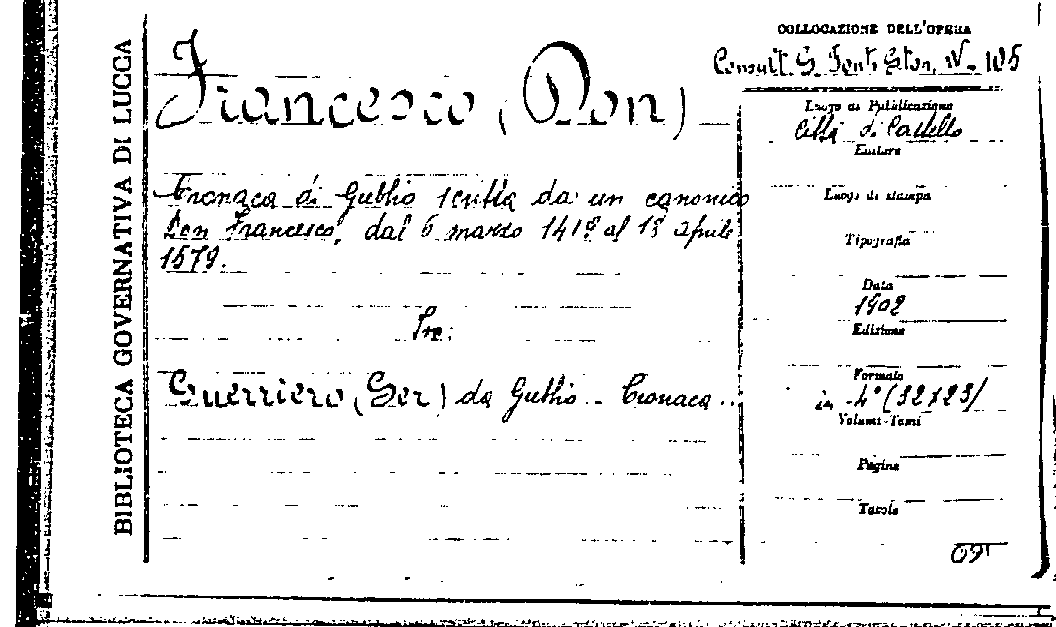 BIBLIOTECA GOVERNATIVA DI LUCCA
Francesco (Don)
Cronaca di Gubbio scritta da un canonico
Don Francesco, dal 6 marzo 1419 al 13 aprile
1579.
In:
Guerriero (Ser) da Gubbio - Cronaca..
COLLOCAZIONE DELL'OPERA
Consult. S. Font. Stor. N. 105
Luogo di Pubblicazione
Città di Castello
Editore
Luogo di stampa
Tipografia
Data
1902
Edizione
Formato
in -4° (32x23)
Volumi-Tomi
Pagine
Tavole